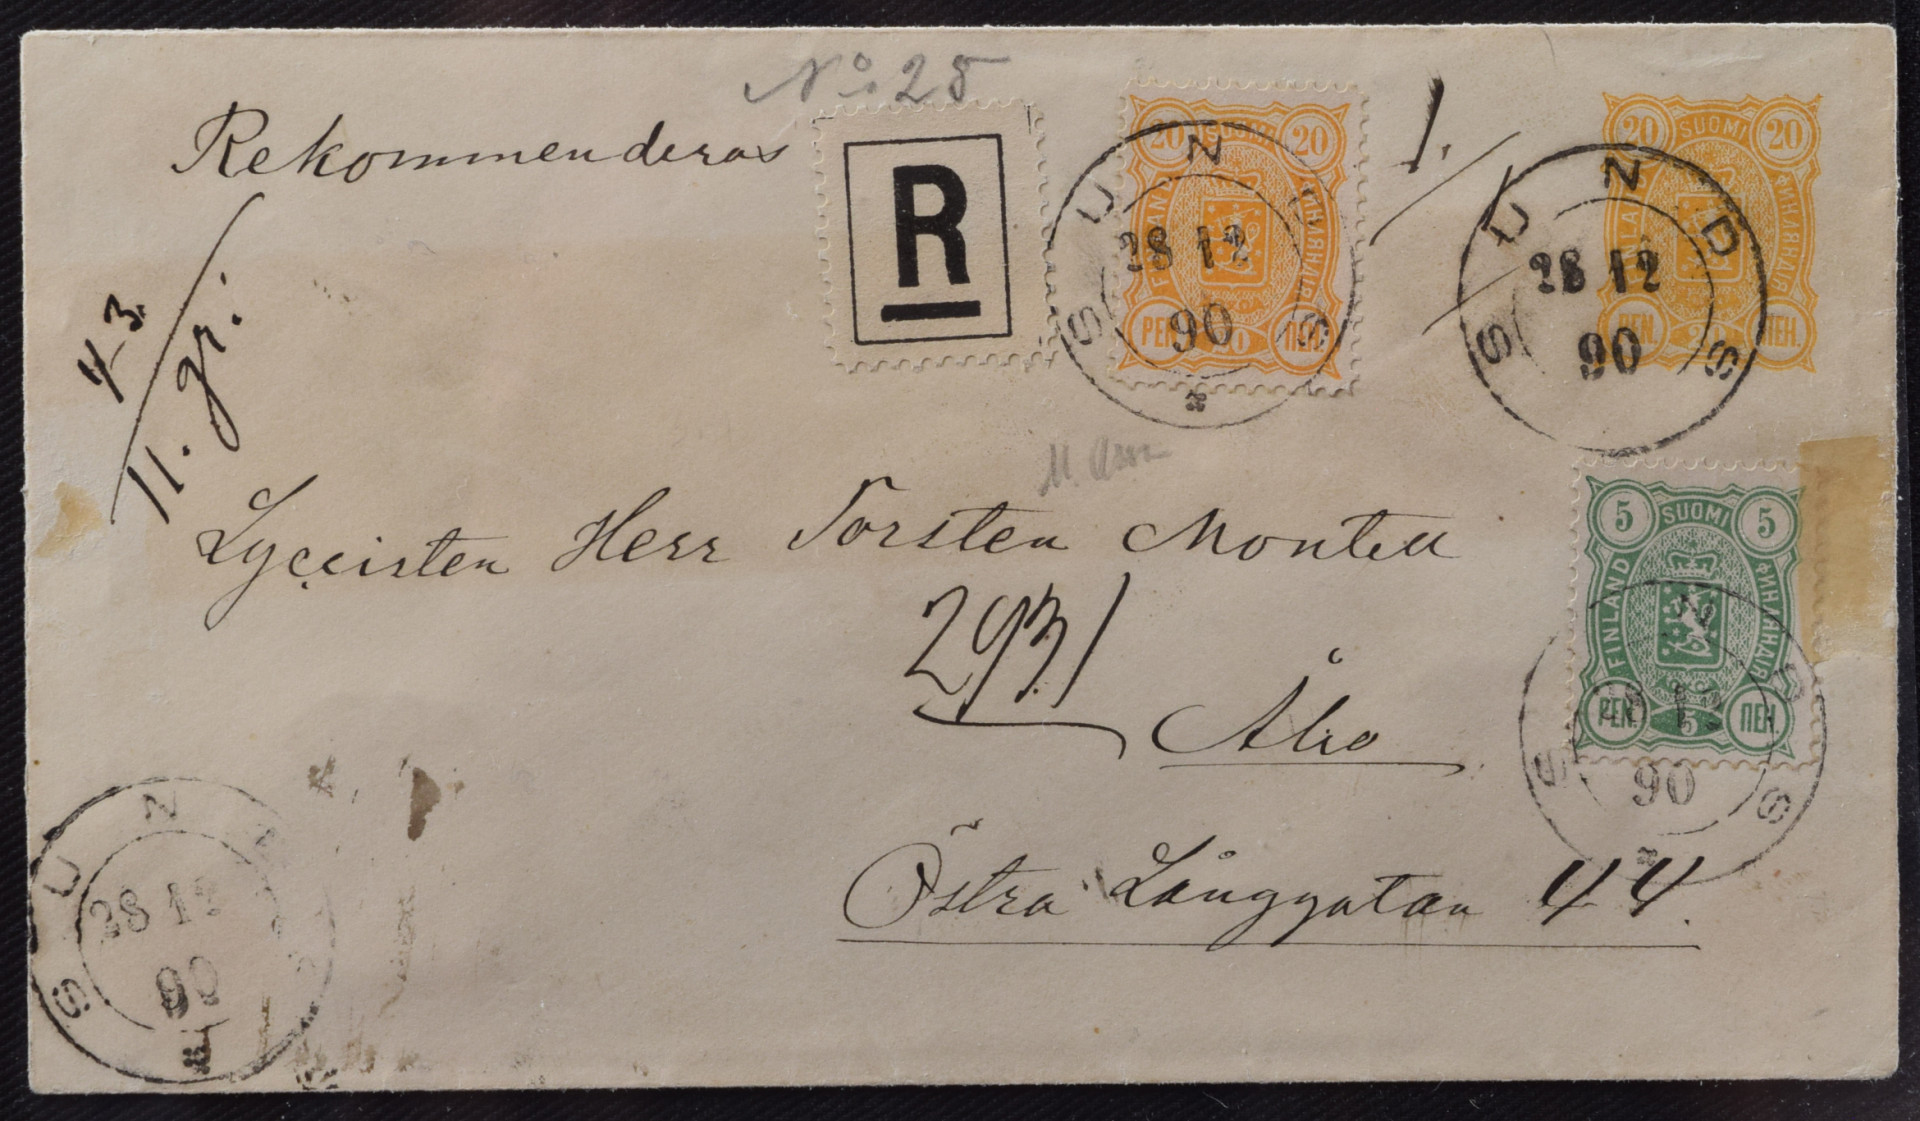 No 25
Rekommenderas
R
20 SUOMI 20
FINLAND
ФИНЛЯНДІЯ
PEN. 20 ПЕН.
SUNDS
28 12
90
1.
20 SUOMI 20
FINLAND
ФИНЛЯНДІЯ
PEN. 20 ПЕН.
SUNDS
28 12
90
43
11. gr.
Lyceisten Herr Torsten Montell
2931
Åbo
5 SUOMI 5
FINLAND
ФИНЛЯНДІЯ
PEN. 5 ПЕН.
SUNDS
28 12
90
Östra Långgatan 44.
SUNDS
28 12
90